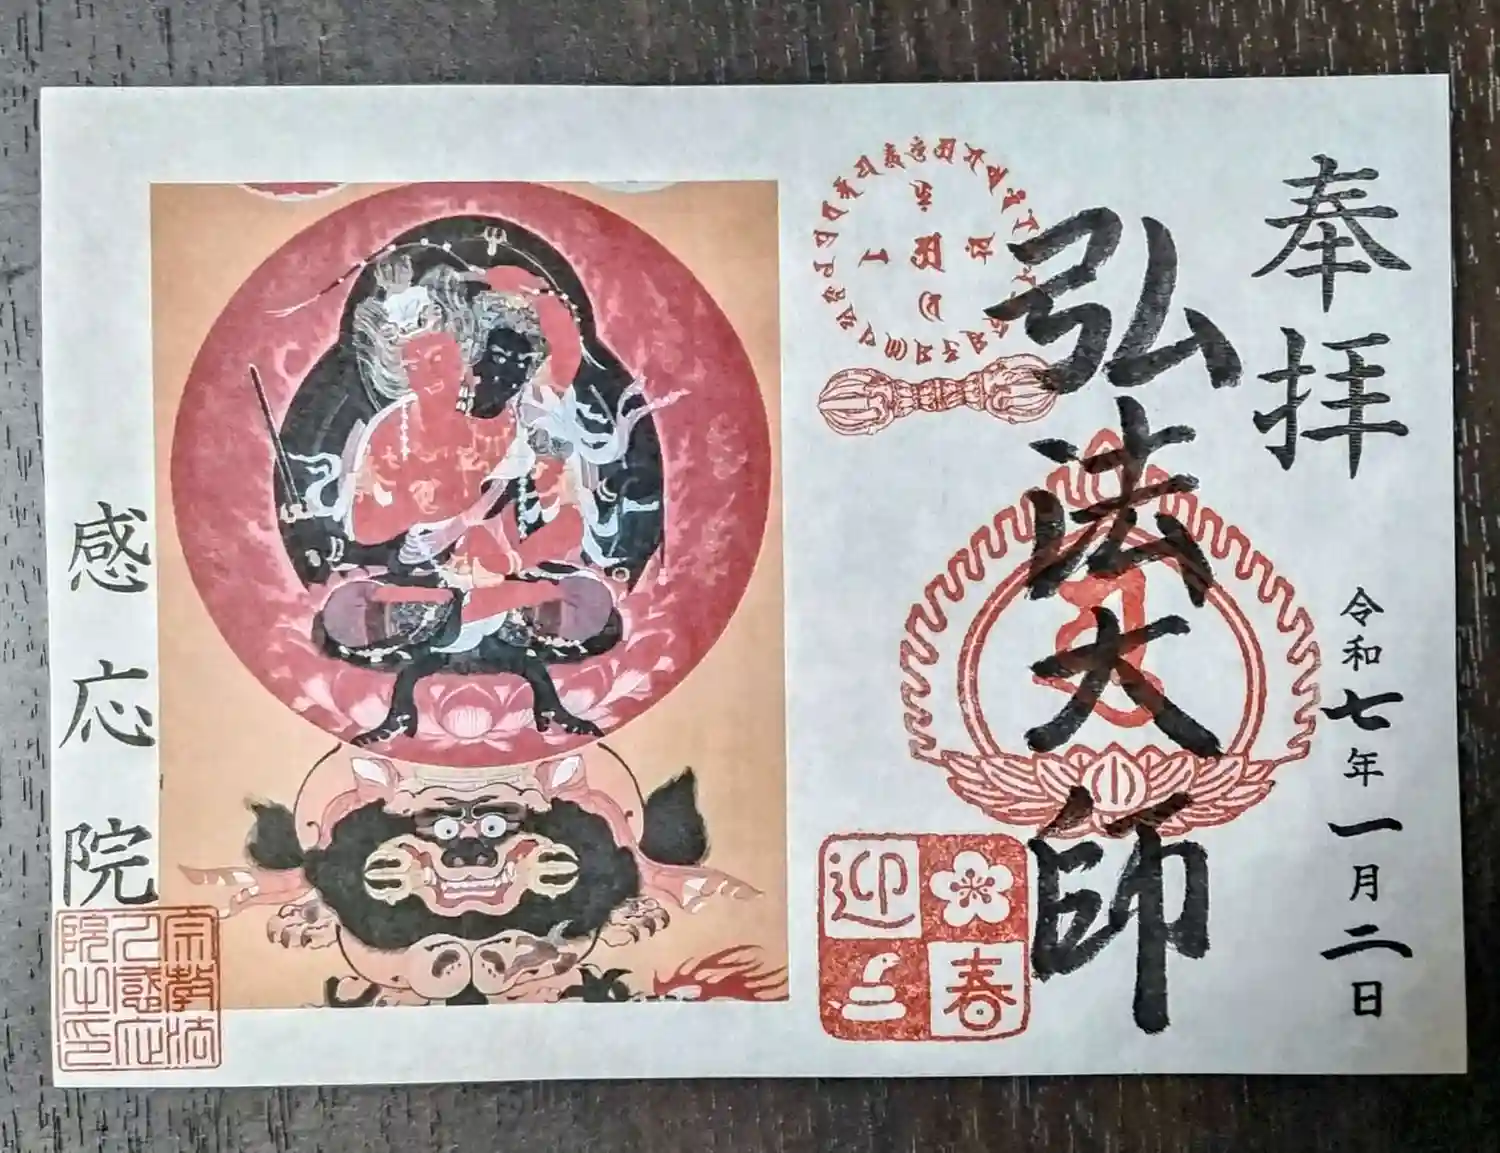 奉拝
弘法大師
令和七年一月二日
迎春
感応院
宗教法
人感応
院之印